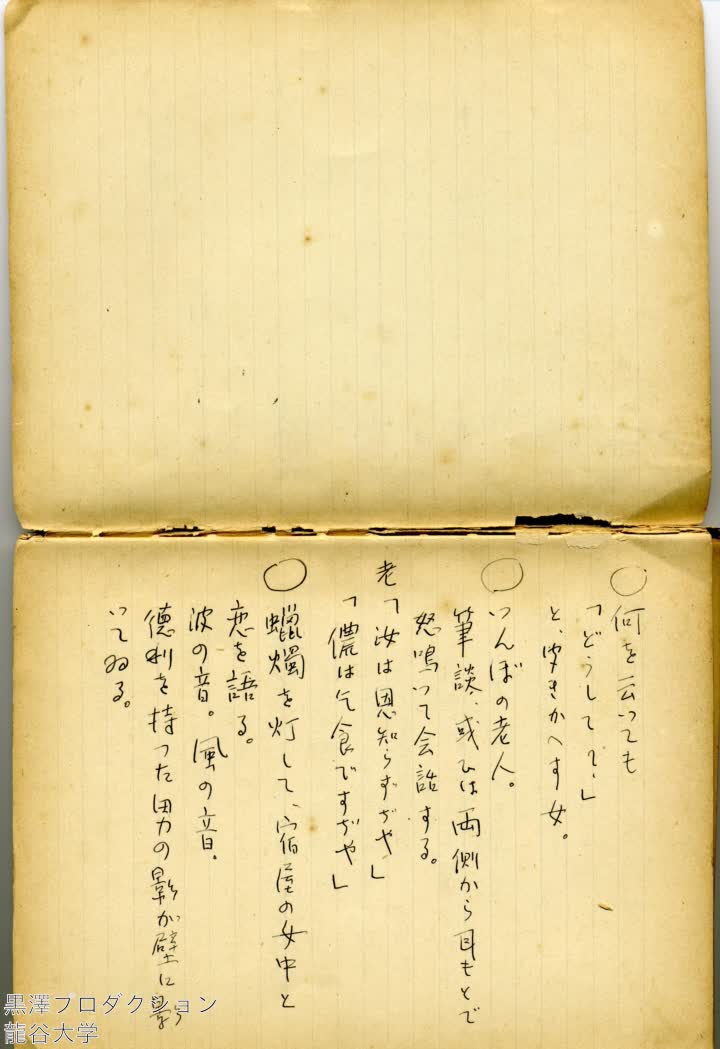 ○何を云っても
「どうして?」
と、聞きかへす女。
○つんぼの老人。
筆談、或ひは両側から耳もとで
怒鳴って会話する。
老「汝は恩知らずぢや」
「儂は乞食ですぢや」
○蠟燭を灯して、宿屋の女中と
恋を語る。
波の音。風の音。
德利を持った男の影が壁に
いてゐる。
黒澤プロダクション
龍谷大学